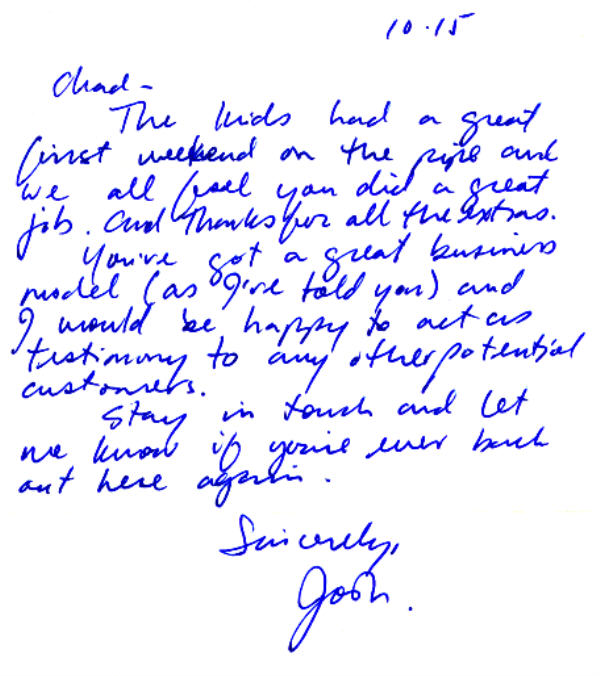 10.15
Chad-
The kids had a great
first weekend on the pipe and
we all feel you did a great
job. And thanks for all the extras.
You've got a great business
model (as I've told you) and
I would be happy to act as
testimony to any other potential
customers.
Stay in touch and let
me know if you're ever back
out here again.
Sincerely,
Josh.